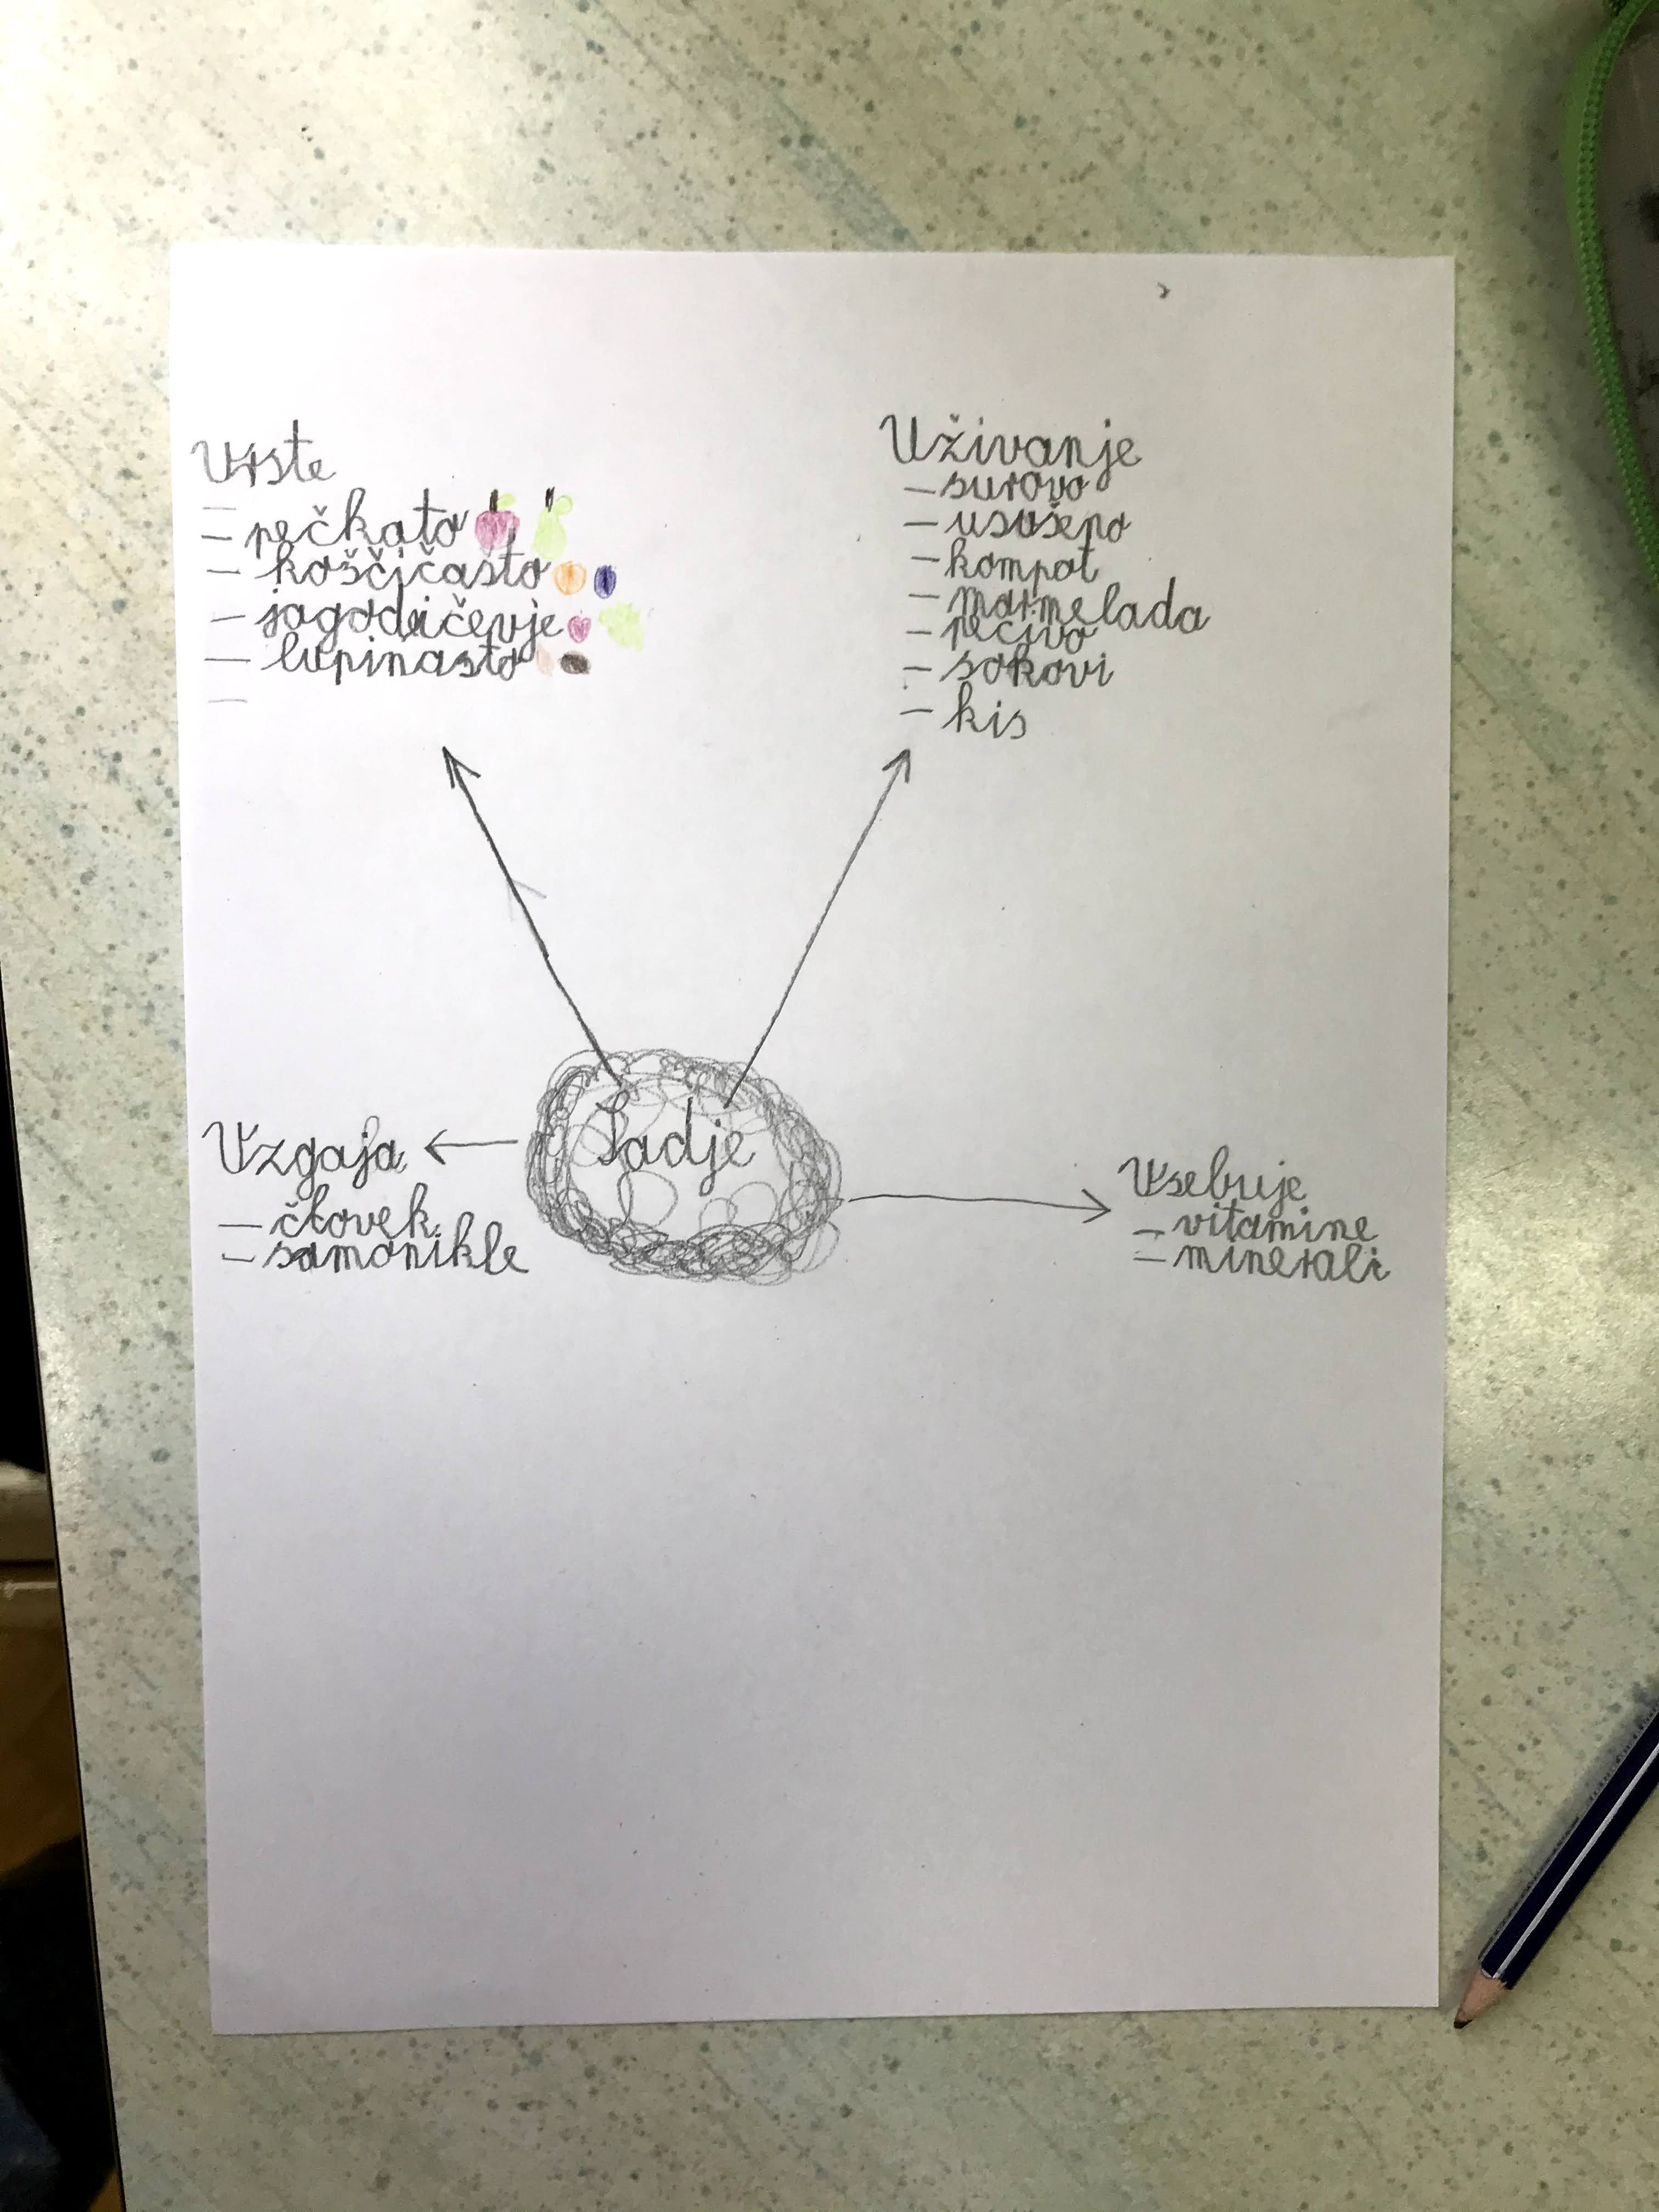 Vrste
- pečkato
- koščičasto
- jagodičevje
- lupinasto
-
Uživanje
- surovo
- usušeno
- kompot
- marmelada
- pecivo
- sokovi
- kis
Sadje
Vzgaja
- človek
- samonikle
Vsebuje
- vitamine
- minerali